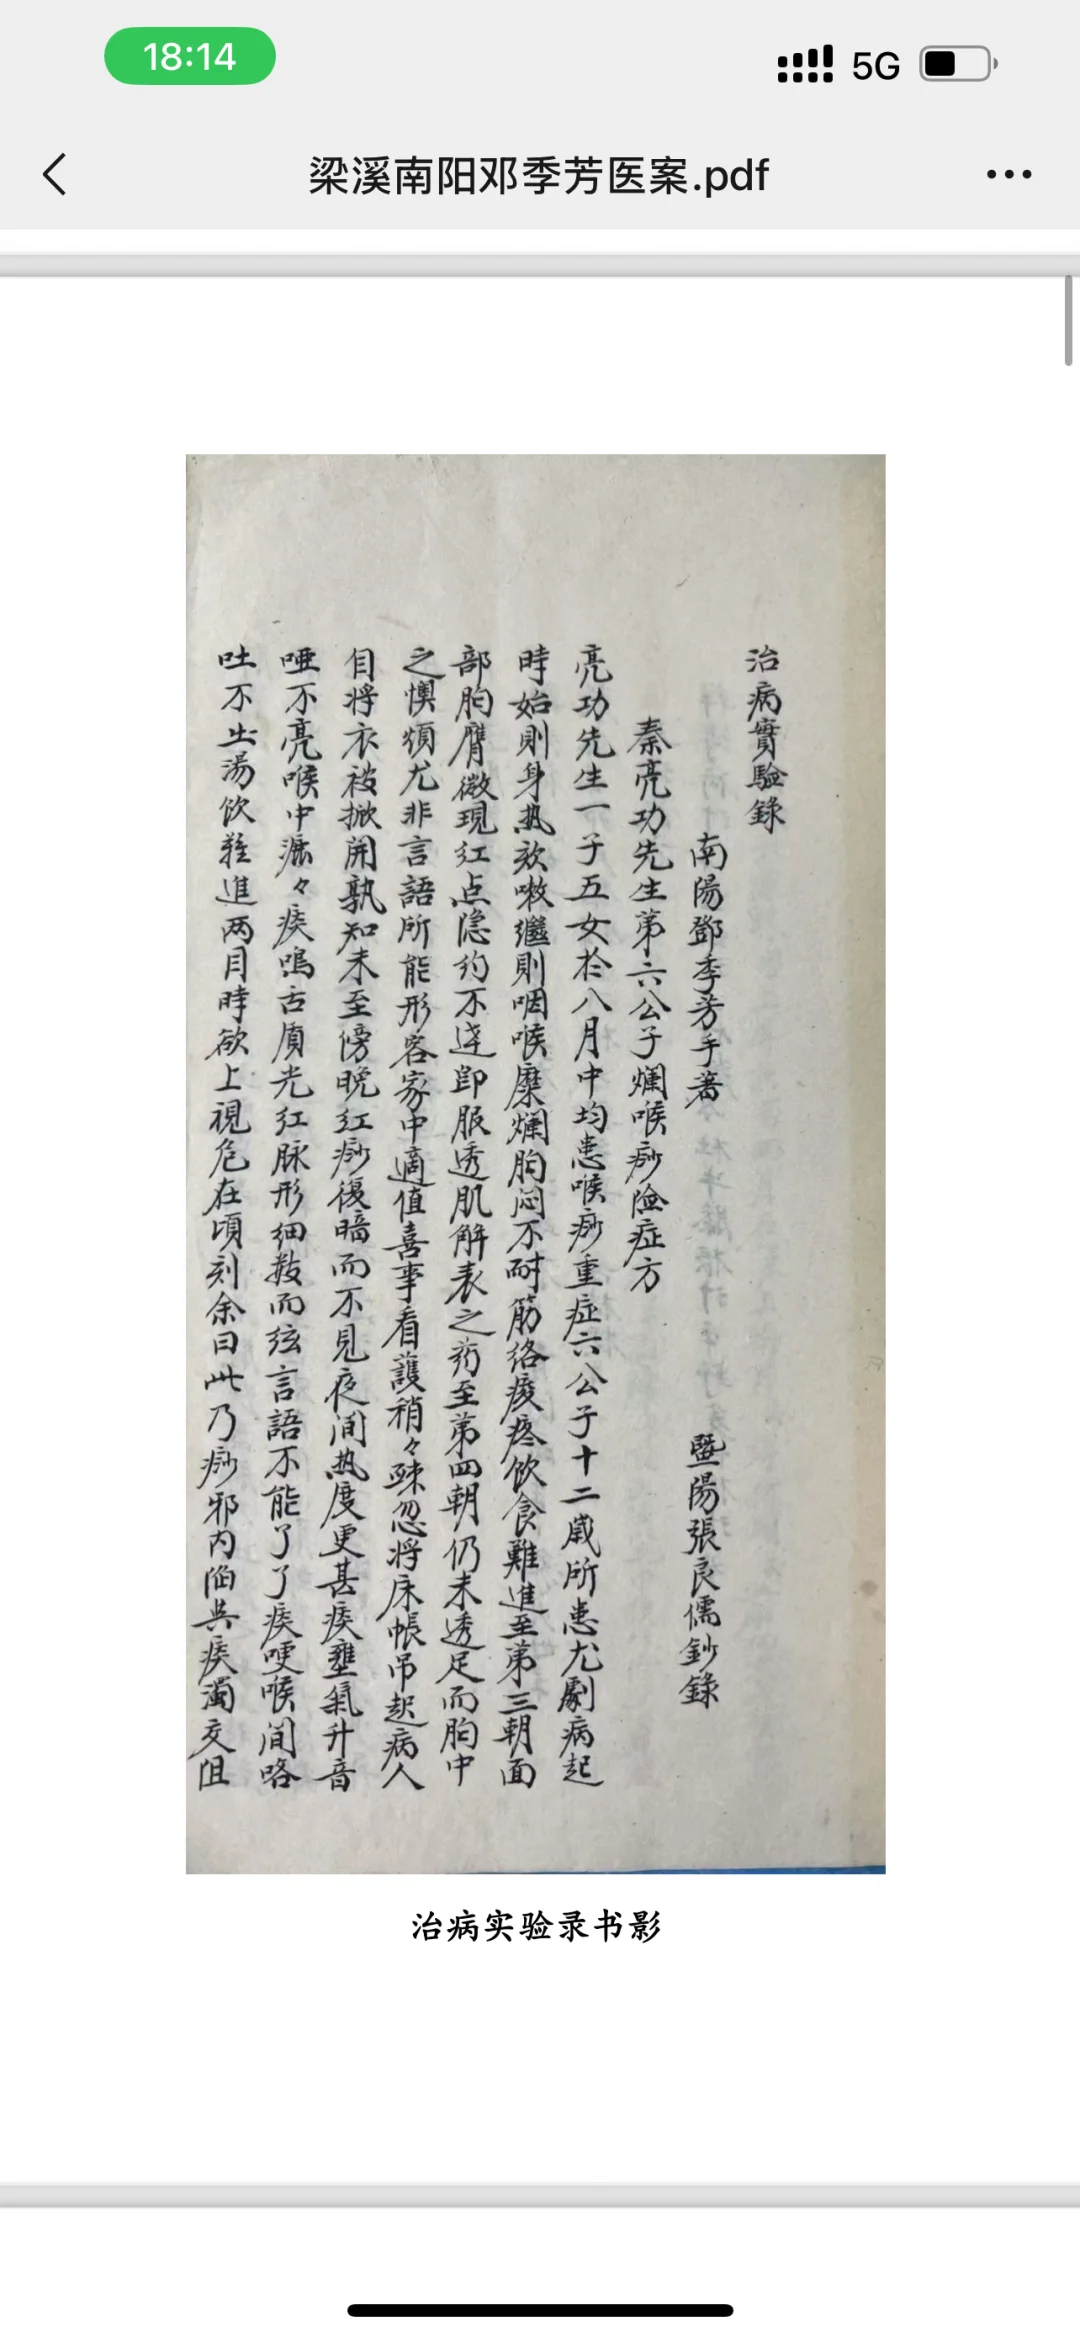 18:14
5G
梁溪南阳邓季芳医案.pdf
治病實驗錄
南陽鄧季芳手著 暨陽張良儒鈔錄
秦亮功先生第六公子爛喉痧險症方
亮功先生一子五女於八月中均患喉痧重症六公子十二歲所患尤劇病起
時始則身热欬嗽繼則咽喉糜爛胸闷不耐筋络痠疼飲食難進至第三朝面
部胸膺微現红点隐约不透卽服透肌解表之药至第四朝仍未透足而胸中
之懊煩尤非言語所能形容家中適值喜事看護稍々疎忽将床帳吊起病人
自将衣被掀開孰知未至傍晚红痧復暗而不見夜间热度更甚痰壅氣升音
哑不亮喉中漉々痰鳴舌質光红脉形细数而弦言語不能了了痰哽喉间咯
吐不出湯饮難進两目時欲上視危在頃刻余曰此乃痧邪内陷與痰濁交阻
治病实验录书影